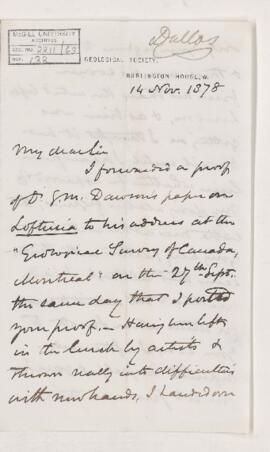 McGILL UNIVERSITY
ARCHIVES
ACC. NO. 2211/69
REF. 122
Dallas
GEOLOGICAL SOCIETY,
BURLINGTON HOUSE, W.
14 Nov. 1878
My dear Sir
I forwarded a proof
of Dr G.M. Dawson's paper on
Loftusia to his address at the
"Geological Survey of Canada,
Montreal" on the 27th Sept.
the same day that I posted
your proof. — Having been left
in the lurch by artists &
thrown really into difficulties
with new hands, I